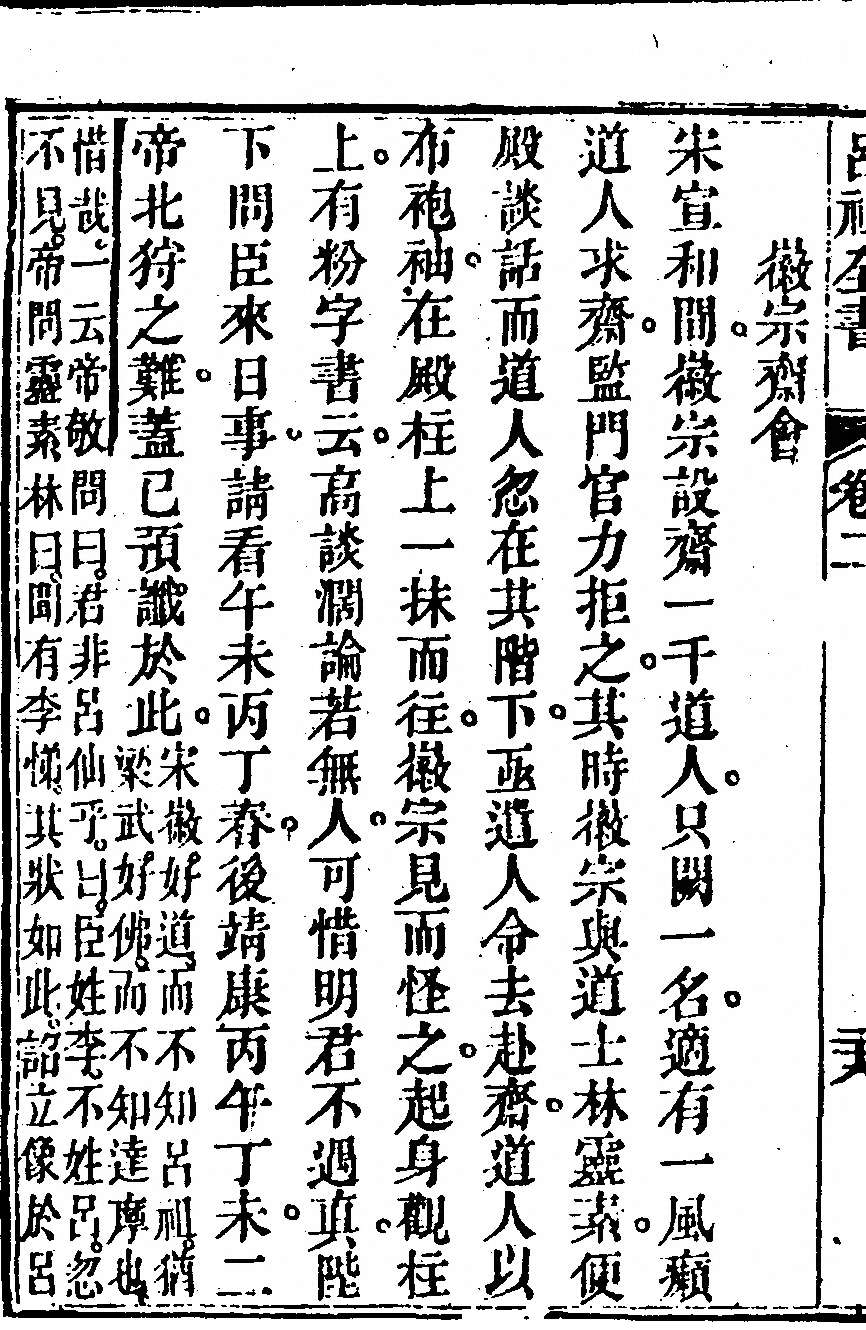 呂祖全書 卷二
徽宗齋會
宋宣和間徽宗設齋一千道人。只闕一名。適有一風癲
道人求齋。監門官力拒之。其時徽宗與道士林靈素便
殿談話而道人忽在其階下。亟道人令去赴齋。道人以
布袍袖。在殿柱上一抹而往。徽宗見而怪之。起身觀柱
上。有粉字書云。高談濶論若無人。可惜明君不遇真。陛
下問臣來日事。請看午未丙丁春。後靖康丙午丁未。二
帝北狩之難。蓋已預讖於此。
宋徽好道。而不知呂祖。猶
梁武好佛。而不知達摩也。
惜哉。一云帝敬問曰。君非呂仙乎。曰。臣姓李。不姓呂。忽
不見。帝問靈素林曰。聞有李悌。其狀如此。詔立像於呂